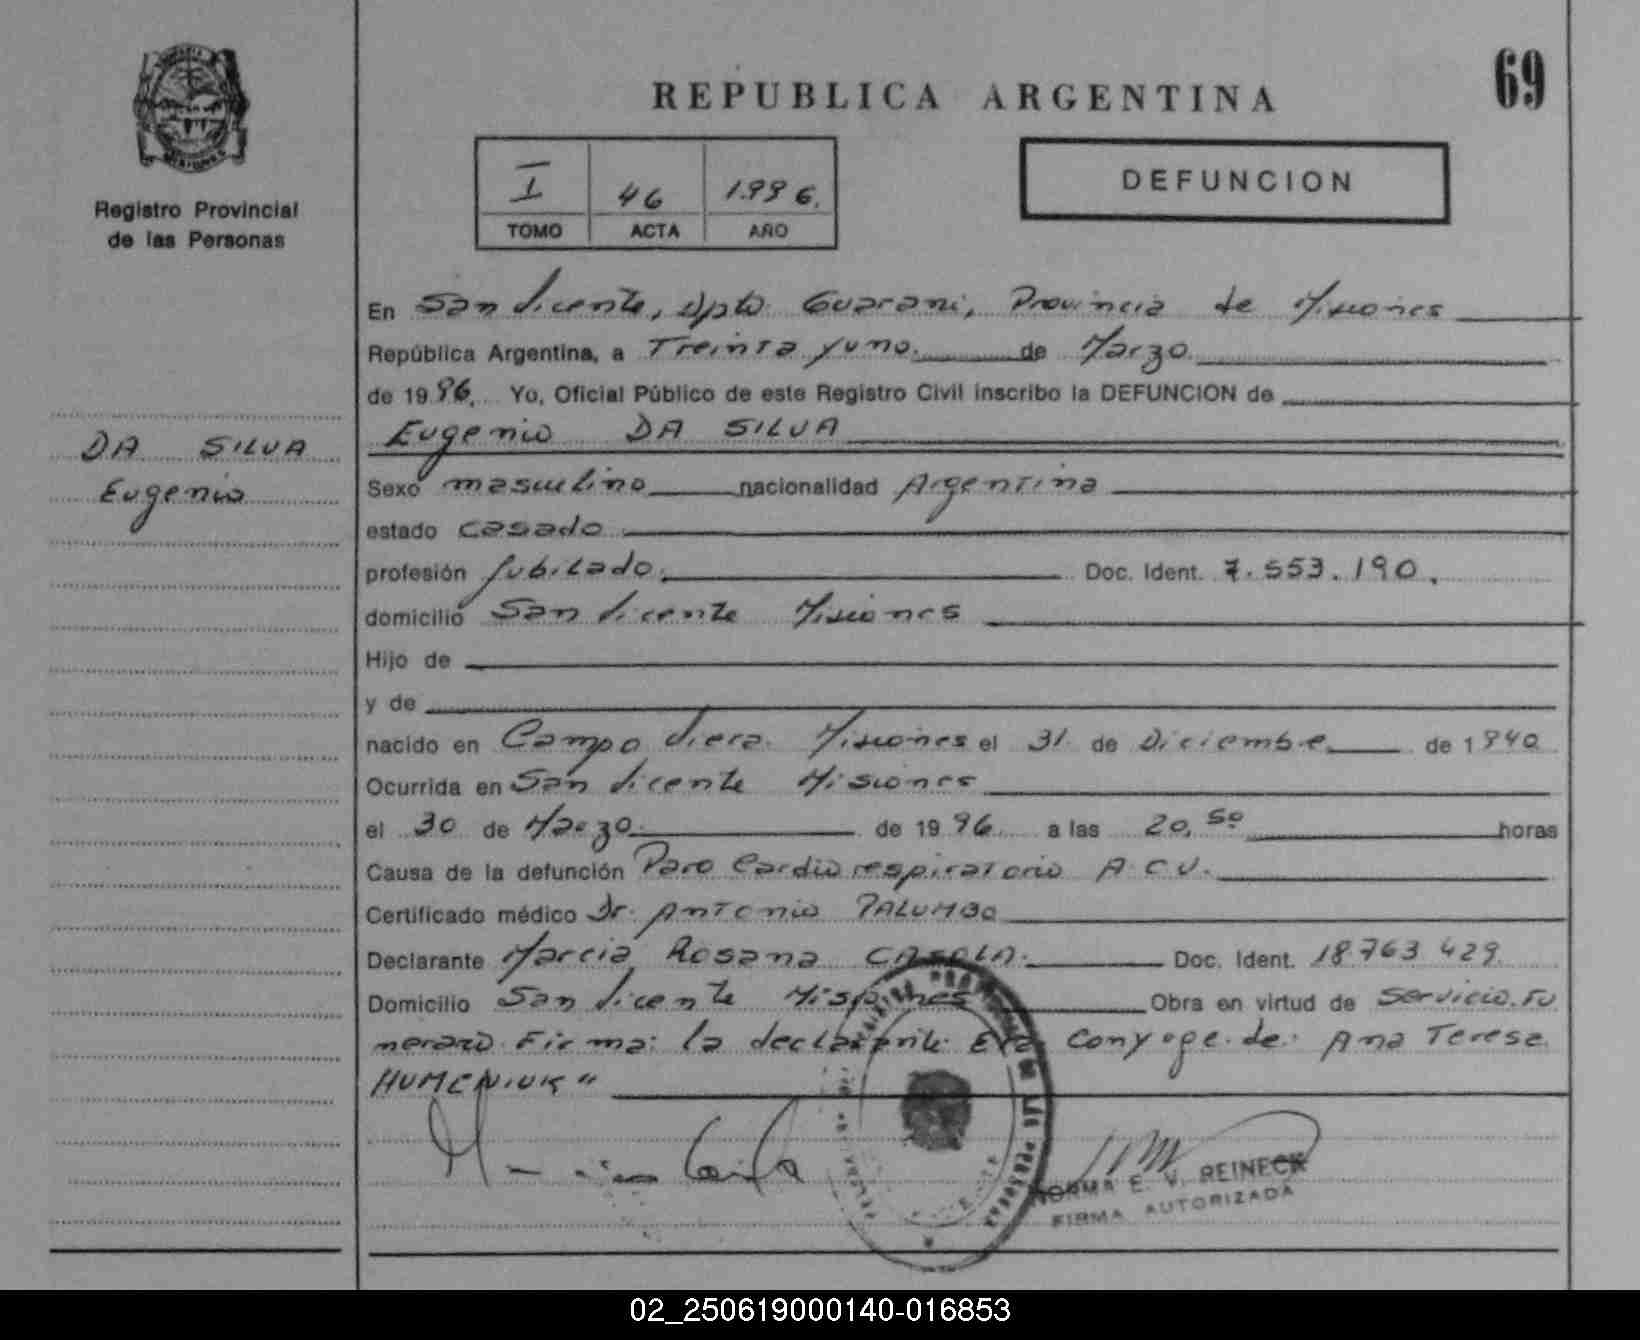 REPUBLICA ARGENTINA
69
I 46 1.996.
TOMO ACTA AÑO
DEFUNCION
Registro Provincial
de las Personas
DA SILVA
Eugenio
En San Vicente, Dpto Guarani, Provincia de Misiones
República Argentina, a Treinta y uno. de Marzo
de 1996. Yo, Oficial Público de este Registro Civil inscribo la DEFUNCION de
Eugenio DA SILVA
Sexo masculino nacionalidad Argentina
estado casado
profesión Jubilado. Doc. Ident. 7.553.190.
domicilio San Vicente Misiones
Hijo de
y de
nacido en Campo Viera. Misiones el 31 de Diciembre de 1940
Ocurrida en San Vicente Misiones
el 30 de Marzo. de 1996 a las 20,50 horas
Causa de la defunción Paro Cardio respiratorio A.C.V.
Certificado médico Dr. Antonio PALUMBO
Declarante Marcia Rosana Doc. Ident. 18.763.429.
Domicilio San Vicente Misiones Obra en virtud de Servicio Fu
nerario Firma: la declarante Era Conyoge de: Ana Teresa
HUMENIUK"
NORMA E. V. REINECK
FIRMA AUTORIZADA
02_250619000140-016853